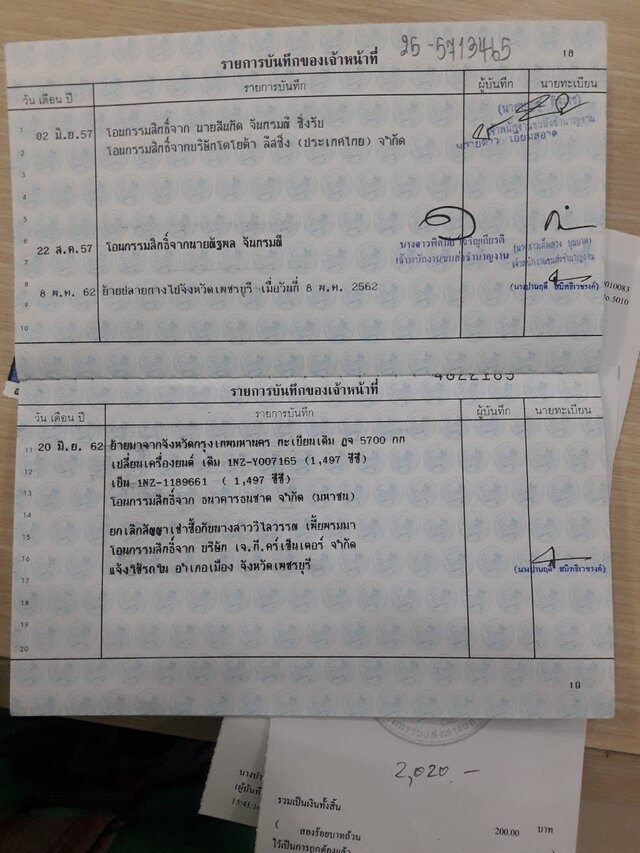 รายการบันทึกของเจ้าหน้าที่ 25-5713465 18
วัน เดือน ปี รายการบันทึก ผู้บันทึก นายทะเบียน
1
2 02 มิ.ย.57 โอนกรรมสิทธิ์จาก นายสันทัด จันทรมณี ซึ่งรับ
3 โอนกรรมสิทธิ์จากบริษัทโตโยต้า ลีสซิ่ง (ประเทศไทย) จำกัด
เจ้าพนักงานขนส่งชำนาญงาน
22 ส.ค.57 โอนกรรมสิทธิ์จากนายณัฐพล จันทรมณี
เจ้าพนักงานขนส่งชำนาญงาน เจ้าพนักงานขนส่งชำนาญงาน
8 8 พ.ค. 62 ย้ายปลายทางไปจังหวัดเพชรบุรี เมื่อวันที่ 8 พ.ค. 2562
9
10
010083
No.5010
4622185
รายการบันทึกของเจ้าหน้าที่
วัน เดือน ปี รายการบันทึก ผู้บันทึก นายทะเบียน
11 20 มิ.ย. 62 ย้ายมาจากจังหวัดกรุงเทพมหานคร ทะเบียนเดิม ฎจ 5700 กท
12 เปลี่ยนเครื่องยนต์ เดิม 1NZ-Y007165 (1,497 ซีซี)
เป็น 1NZ-1189661 ( 1,497 ซีซี)
13 โอนกรรมสิทธิ์จาก ธนาคารธนชาต จำกัด (มหาชน)
14
15 ยกเลิกสัญญาเช่าซื้อกับนางสาววิไลวรรณ เพี้ยพรมมา
โอนกรรมสิทธิ์จาก บริษัท เจ.ที.คาร์เซ็นเตอร์ จำกัด
16 แจ้งใช้รถใน อำเภอเมือง จังหวัดเพชรบุรี
17
18
19
20
19
2,020.-
นางปา
(ผู้บันทึ
15:41:1
รวมเป็นเงินทั้งสิ้น
( สองร้อยบาทถ้วน 200.00 บาท
ไว้เป็นการถูกต้องแล้ว